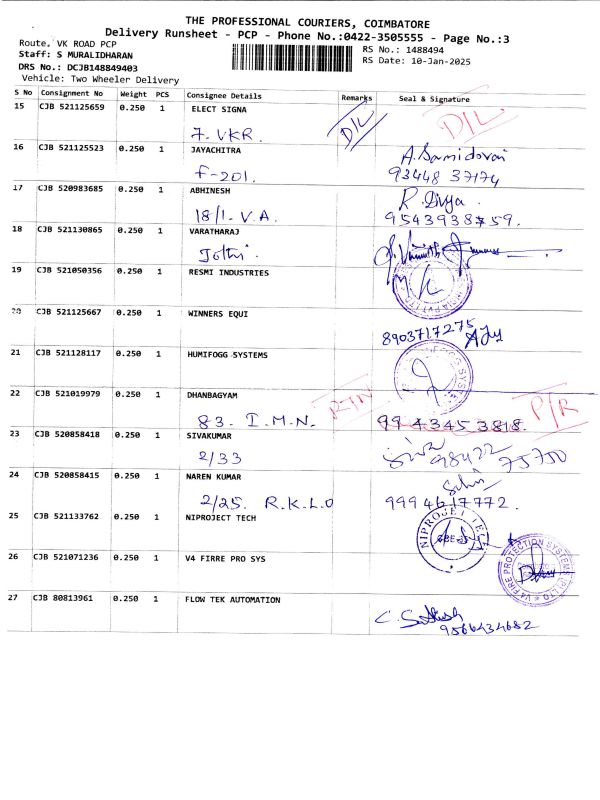 THE PROFESSIONAL COURIERS, COIMBATORE
Delivery Runsheet - PCP - Phone No.:0422-3505555 - Page No.:3
Route. VK ROAD PCP
RS No.: 1488494
Staff: S MURALIDHARAN
RS Date: 10-Jan-2025
DRS No.: DCJB148849403
Vehicle: Two Wheeler Delivery
S No Consignment No Weight PCS Consignee Details Remarks Seal & Signature
15 CJB 521125659 0.250 1 ELECT SIGNA D/L D/L
7. VKR.
16 CJB 521125523 0.250 1 JAYACHITRA A. Samidorai
F-201. 93448 37174
17 CJB 520983685 0.250 1 ABHINESH R. Divya.
18/1. V.A. 9543938759.
18 CJB 521130865 0.250 1 VARATHARAJ
Jothi.
19 CJB 521050356 0.250 1 RESMI INDUSTRIES
20 CJB 521125667 0.250 1 WINNERS EQUI
8903717275 AJy
21 CJB 521128117 0.250 1 HUMIFOGG SYSTEMS
22 CJB 521019979 0.250 1 DHANBAGYAM RTN P/R
83. I.M.N. 99 43453 818.
23 CJB 520858418 0.250 1 SIVAKUMAR
2/33 Siva 98422 75750
24 CJB 520858415 0.250 1 NAREN KUMAR
2/25. R.K.L.O 9994617772.
25 CJB 521133762 0.250 1 NIPROJECT TECH NIPROJET TE
26 CJB 521071236 0.250 1 V4 FIRRE PRO SYS V4 FIRE PROTECTION SYSTEMS (P) LTD
27 CJB 80813961 0.250 1 FLOW TEK AUTOMATION
C. Sathish
9566434682